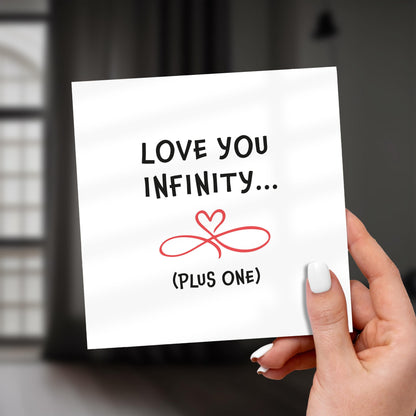 LOVE YOU
INFINITY...
(PLUS ONE)